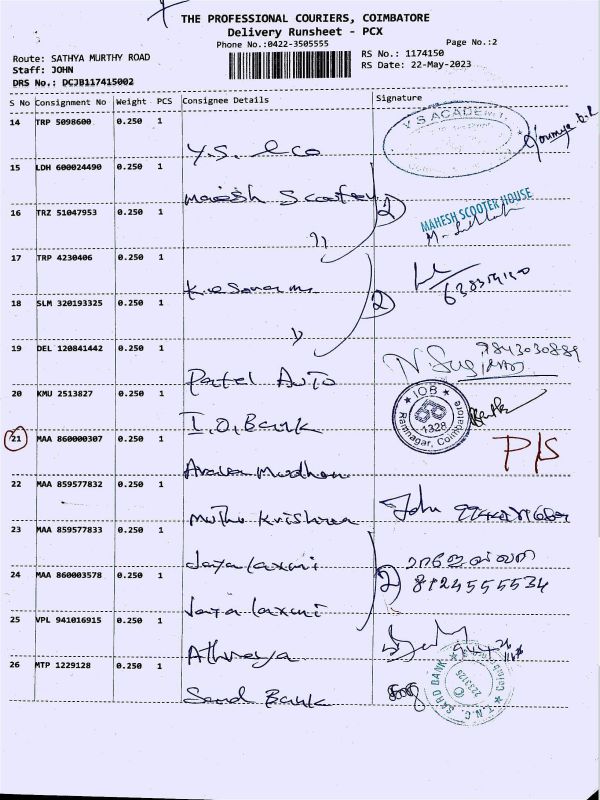 THE PROFESSIONAL COURIERS, COIMBATORE
Delivery Runsheet - PCX
Phone No.:0422-3505555
Page No.:2
Route: SATHYA MURTHY ROAD
RS No.: 1174150
Staff: JOHN
RS Date: 22-May-2023
DRS No.: DCJB117415002
S No Consignment No Weight PCS Consignee Details Signature
14 TRP 5098600 0.250 1
Y.S. Eco
Y S ACADEMY
15 LDH 600024490 0.250 1
Mahesh Scooter
2
16 TRZ 51047953 0.250 1
MAHESH SCOOTER HOUSE
17 TRP 4230406 0.250 1
2
18 SLM 320193325 0.250 1
19 DEL 120841442 0.250 1
Patel Auto
9843030889
20 KMU 2513827 0.250 1
I.O. Bank
IOB
1328
Ramnagar, Coimbatore
21 MAA 860000307 0.250 1
P/S
22 MAA 859577832 0.250 1
Muthu Krishna
John
23 MAA 859577833 0.250 1
Jaya Laxmi
ராஜேஸ்வரி
24 MAA 860003578 0.250 1
Jaya Laxmi
2
8124555534
25 VPL 941016915 0.250 1
Athreya
26 MTP 1229128 0.250 1
Sard Bank
T.N.C. SARD BANK